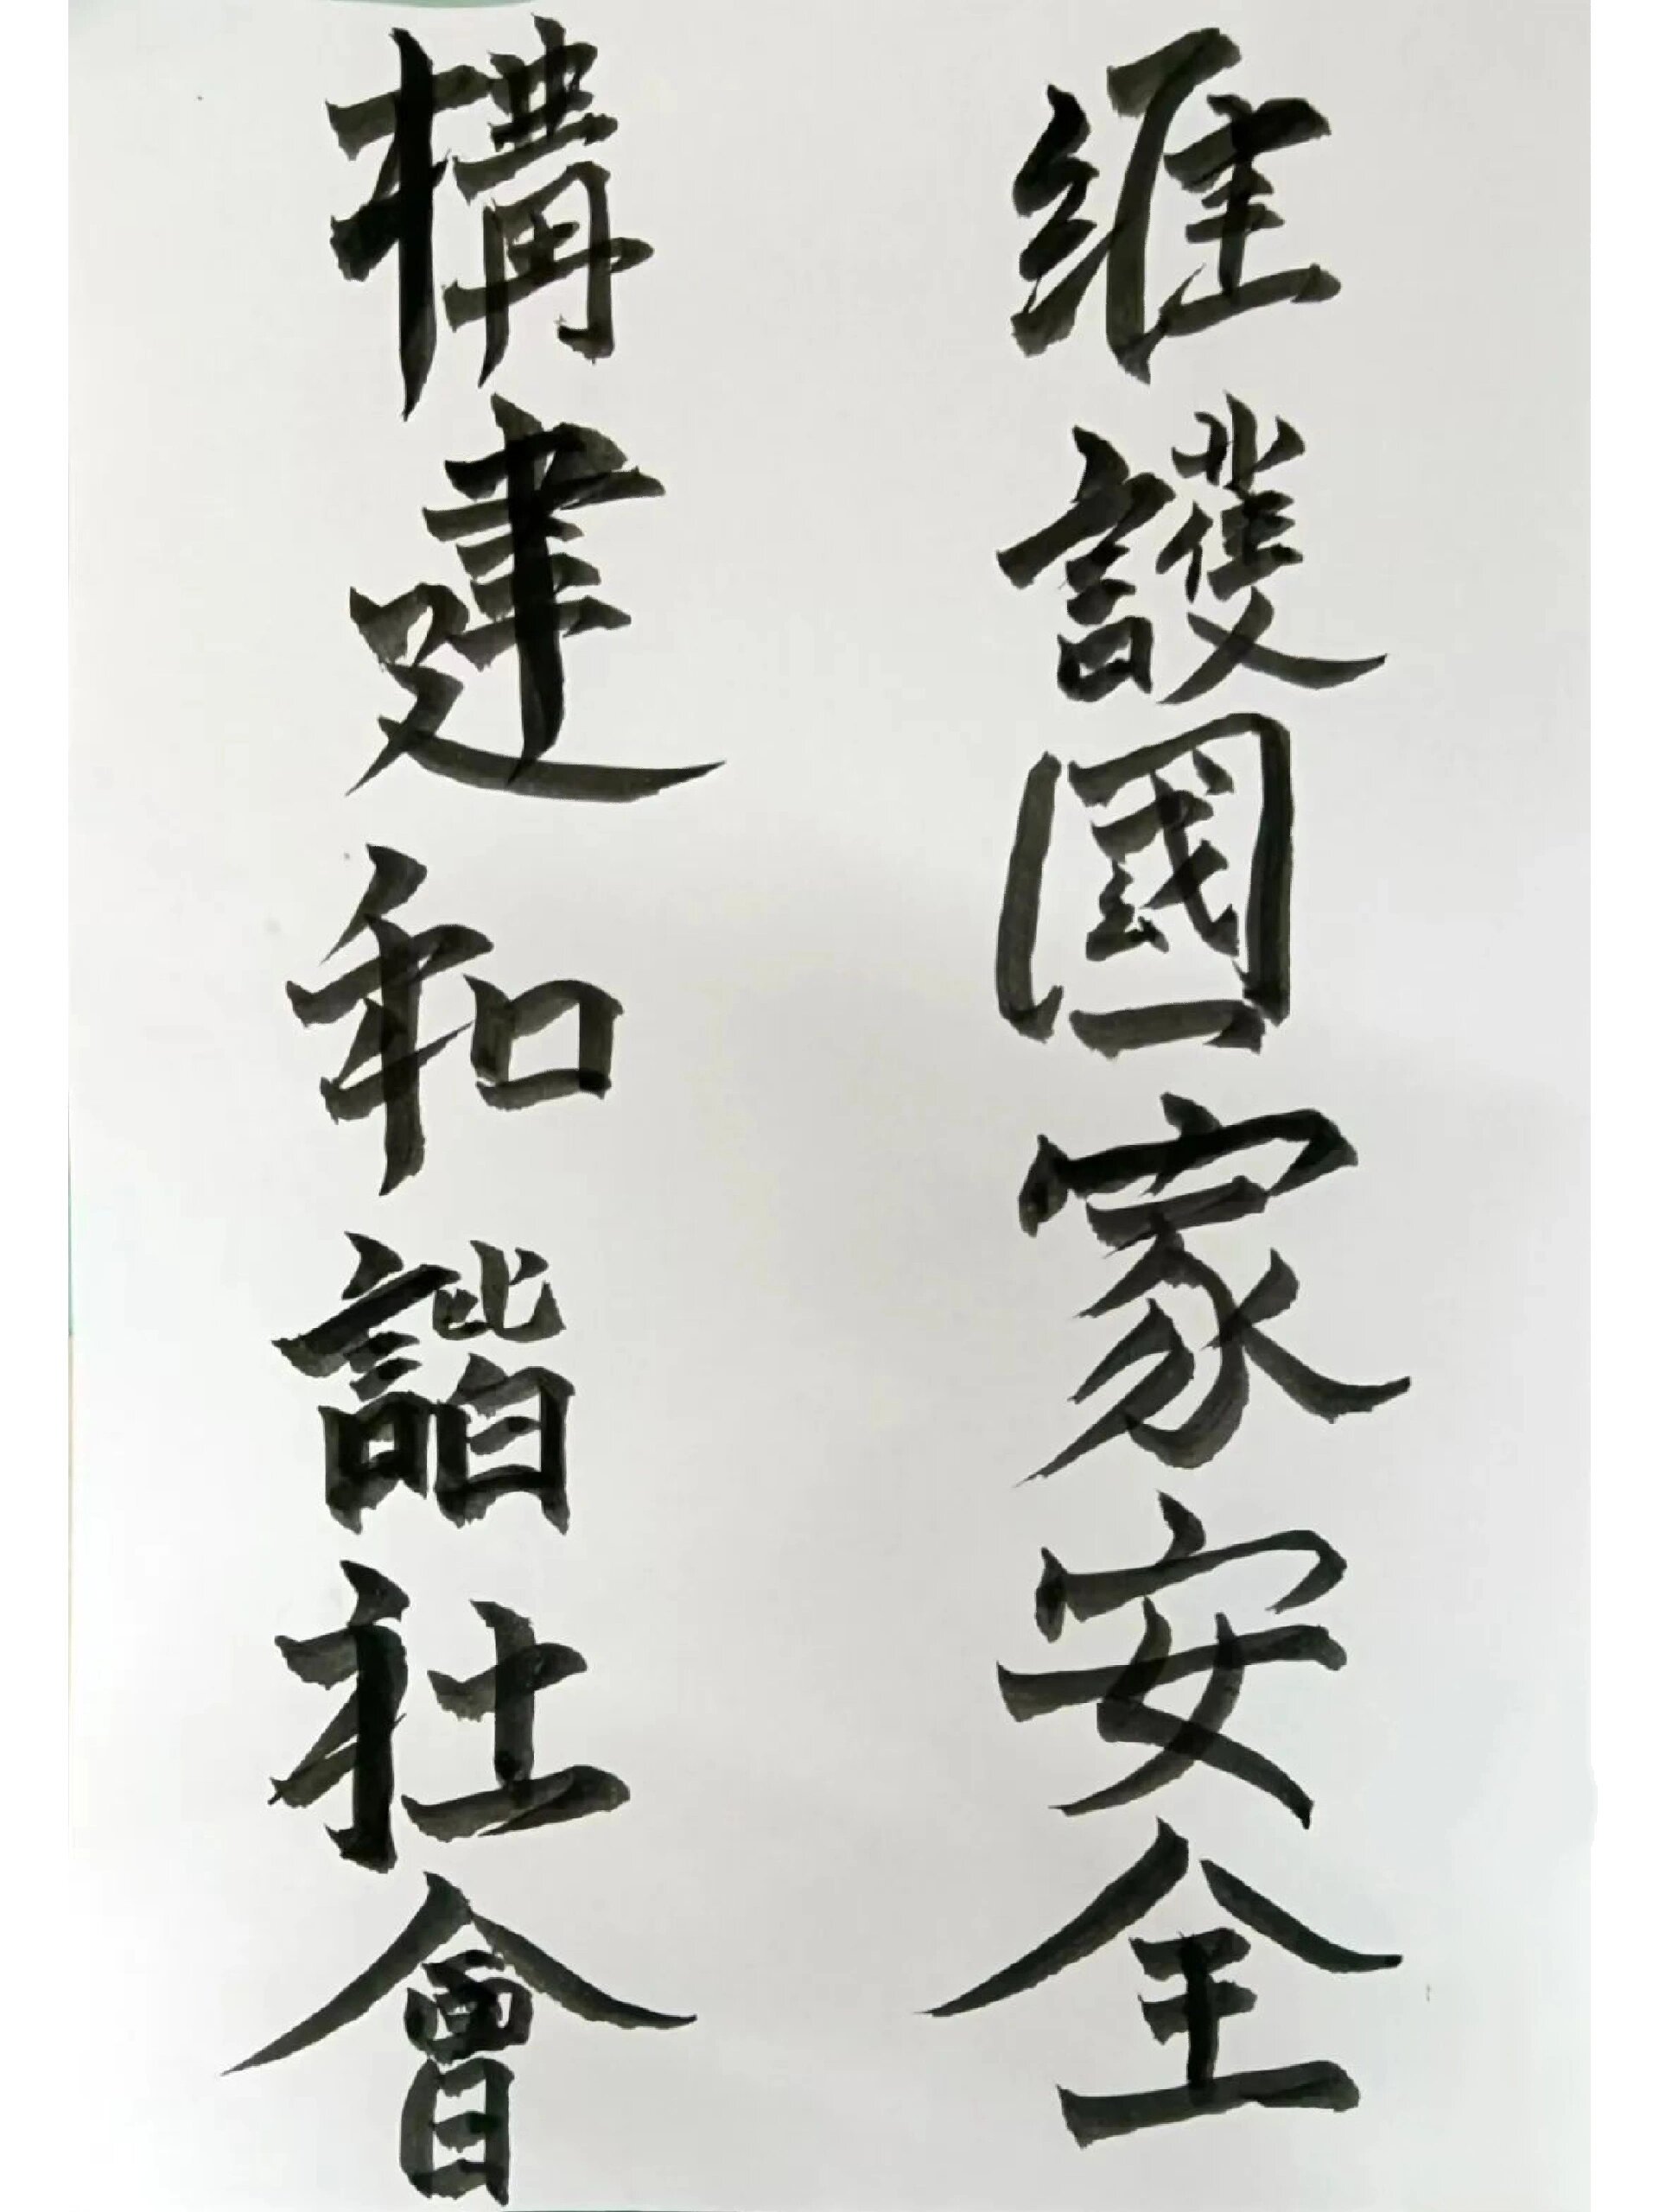 維護國家安全
構建和諧社會